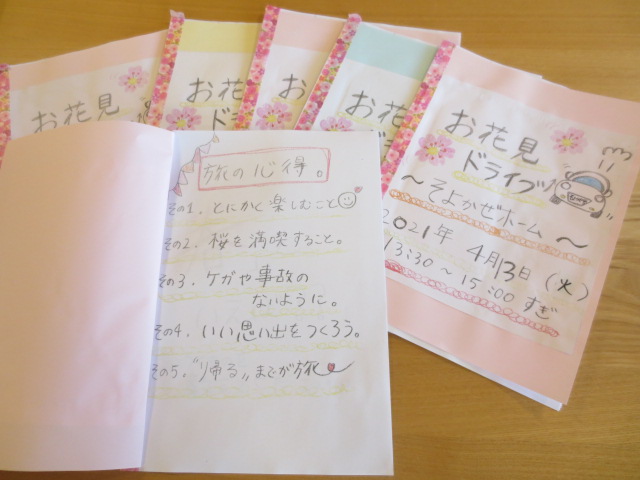 お花見
お花見
ドライブ
お花見
ドライブッ
〜そよかぜホーム〜
2021年 4月13日(火)
13:30〜15:00すぎ
旅の心得。
その1. とにかく楽しむこと
その2. 桜を満喫すること。
その3. ケガや事故の
ないように。
その4. いい思い出をつくろう。
その5. "帰る〟までが旅